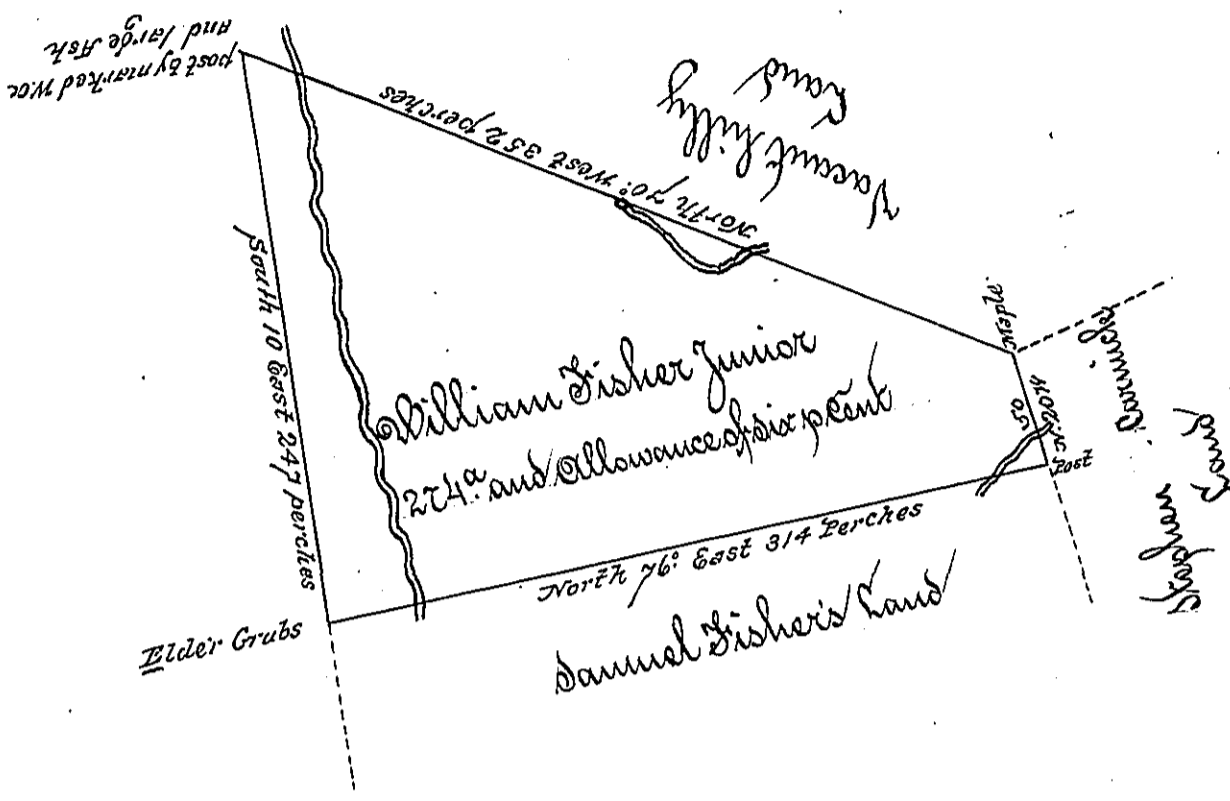 post by marked W.oc
and large Ash
North 70° West 352 perches
Vacant hilly
Land
South 10 East 247 perches
William Fisher Junior
274.a and Allowance of six p Cent
Meple
N. 20 W
50
Post
Stephen
Land
North 76° East 314 Perches
Elder Grubs
Samuel Fisher's Land